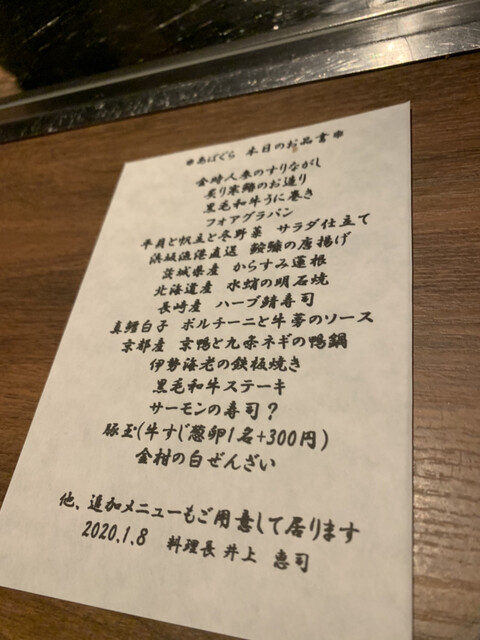 *あばぐら 本日のお品書*
金時人参のすりながし
炙り寒鰤のお造り
黒毛和牛うに巻き
フォアグラパン
平貝と帆立と冬野菜 サラダ仕立て
浜坂漁港直送 鮟鱇の唐揚げ
茨城県産 からすみ蓮根
北海道産 水蛸の明石焼
長崎産 ハーブ鯖寿司
真鱈白子 ポルチーニと牛蒡のソース
京都産 京鴨と九条ネギの鴨鍋
伊勢海老の鉄板焼き
黒毛和牛ステーキ
サーモンの寿司?
豚玉(牛すじ葱卵1名+300円)
金柑の白ぜんざい
他、追加メニューもご用意して居ります
2020.1.8 料理長 井上 恵司